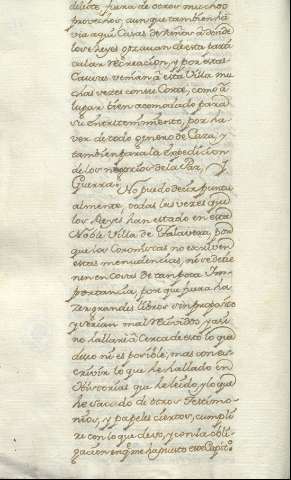 deleite, fuera de otros muchos
provechos, aunque tambien ha
via aqui Casas de Reñas à donde
los Reyes gozauan de esta parti
cular Recreacion, y por estas
Causas venian à esta Villa mu
chas vezes con su Corte, como à
lugar bien acomodado para
su entretenimiento, por ha
ver de todo genero de Caza, y
tambien para la expedicion
de los negocios de la Paz, y
Guerra.
No puedo dezir puntu
almente, todas las vezes que
los Reyes han estado en esta
Noble Villa de Talavera, por
que los Coronistas no escriven
estas menudencias, ni se detie
nen en Cosas de tan poca Im
portancia, por que fuera ha
zer grandes libros sin proposito
y serian mal recividos, y assi
no hallarè à cerca de esto lo que
deseo ni es posible; mas con es
crivir lo que he hallado en
Historias que he leido, y lo que
he sacado de otros Testimo
nios, y papeles ciertos, cumpli
rè con lo que devo, y con la obli
gacion en q me ha puesto este Capit.º